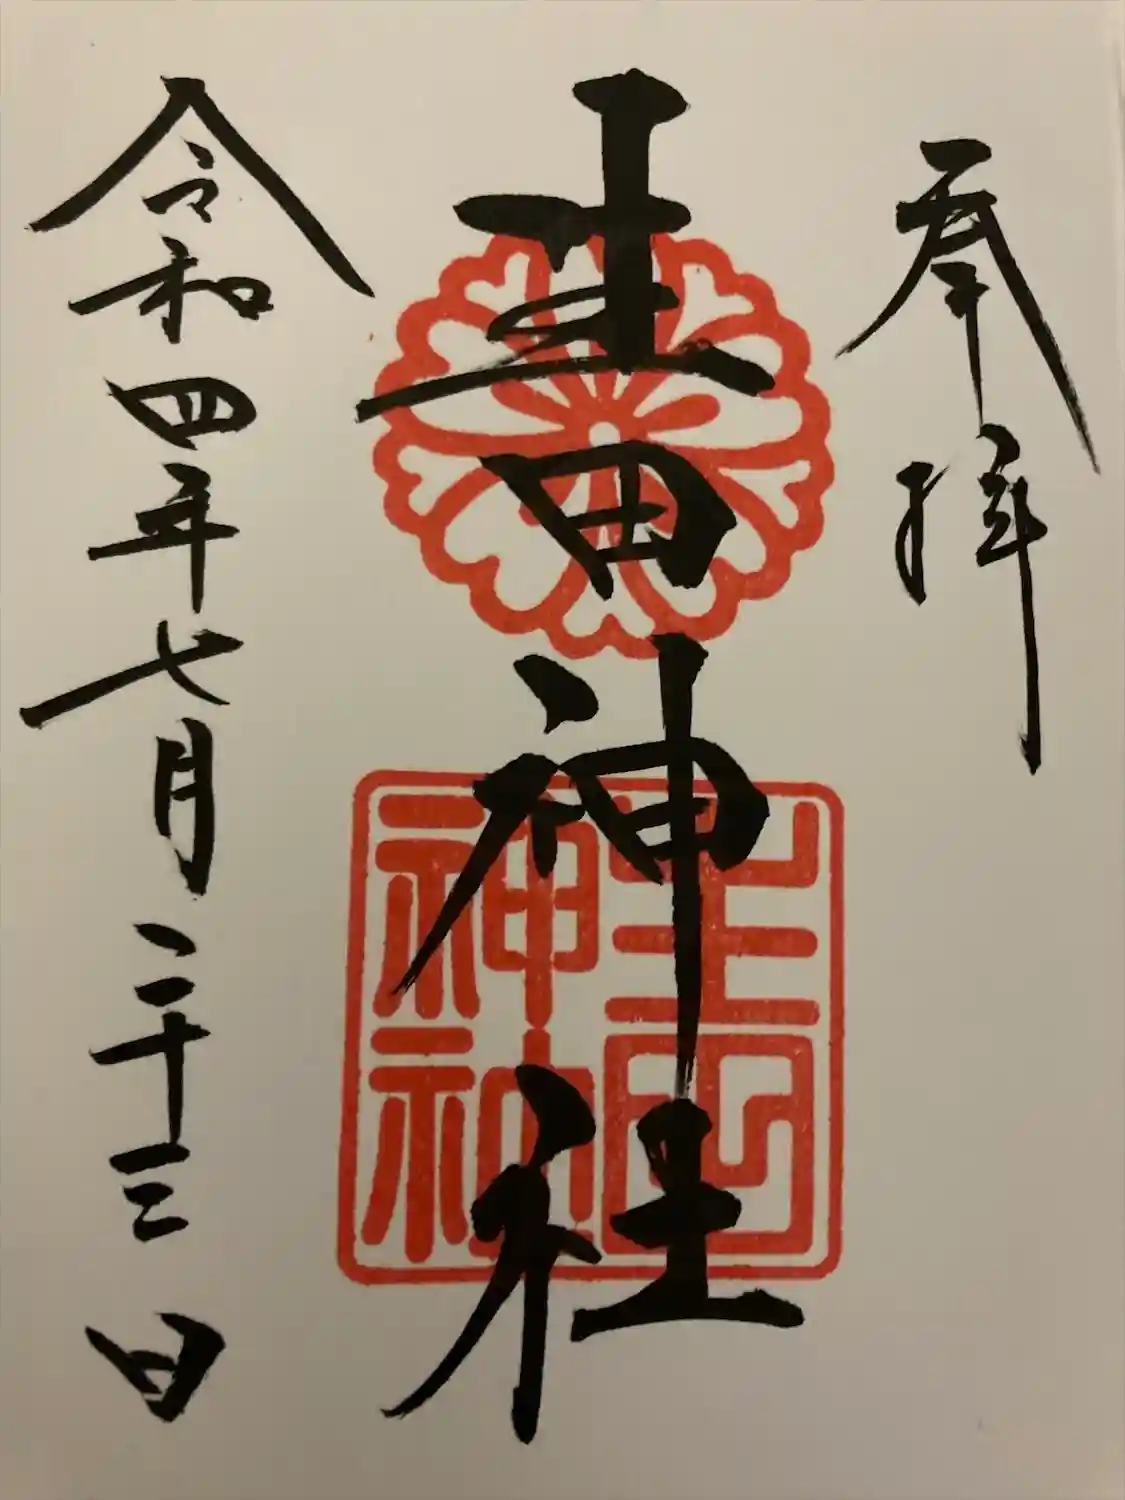 奉拝
生田神社
令和四年七月二十三日
生田
神社